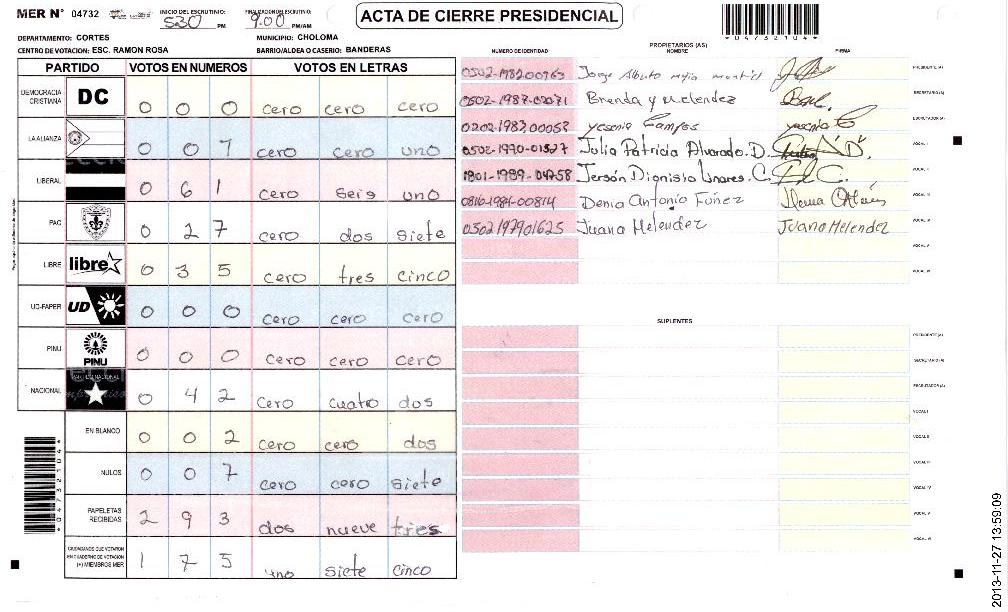 MER N° 04732 INICIO DEL ESCRUTINIO: 530 PM FINALIZACION DEL ESCRUTINIO: 9:00 PM/AM
ACTA DE CIERRE PRESIDENCIAL
*04732104*
DEPARTAMENTO: CORTES MUNICIPIO: CHOLOMA
CENTRO DE VOTACION: ESC. RAMON ROSA BARRIO/ALDEA O CASERIO: BANDERAS
PARTIDO VOTOS EN NUMEROS VOTOS EN LETRAS
DEMOCRACIA CRISTIANA DC 0 0 0 cero cero cero
LA ALIANZA 0 0 1 cero cero uno
LIBERAL 0 6 1 cero seis uno
PAC 0 2 7 cero dos siete
LIBRE libre 0 3 5 cero tres cinco
UD-FAPER UD 0 0 0 cero cero cero
PINU PINU 0 0 0 cero cero cero
NACIONAL PARTIDO NACIONAL 0 4 2 cero cuatro dos
EN BLANCO 0 0 2 cero cero dos
NULOS 0 0 7 cero cero siete
PAPELETAS RECIBIDAS 2 9 3 dos nueve tres
CIUDADANOS QUE VOTARON EN CUADERNO DE VOTACION (+) MIEMBROS MER 1 7 5 uno siete cinco
*04732104*
PROPIETARIOS (AS)
NUMERO DE IDENTIDAD NOMBRE FIRMA
0502-1982.00963 Jorge PRESIDENTE (A)
0502-1987-02071 Brenda y Melendez SECRETARIO (A)
0202-1983.00053 Yesenia Campos Yesenia ESCRUTADOR (A)
0502-1970-01527 Julia Patricia Alvarado. D. VOCAL I
1801-1989-04758 Jersón Dionisio Linares. C. VOCAL II
0816-1984-00814 Denia Antonia Funez VOCAL III
0502197901625 Juana Melendez Juana Melendez VOCAL IV
VOCAL V
VOCAL VI
SUPLENTES
PRESIDENTE (A)
SECRETARIO (A)
ESCRUTADOR (A)
VOCAL I
VOCAL II
VOCAL III
VOCAL IV
VOCAL V
VOCAL VI
2013-11-27 13:59:09